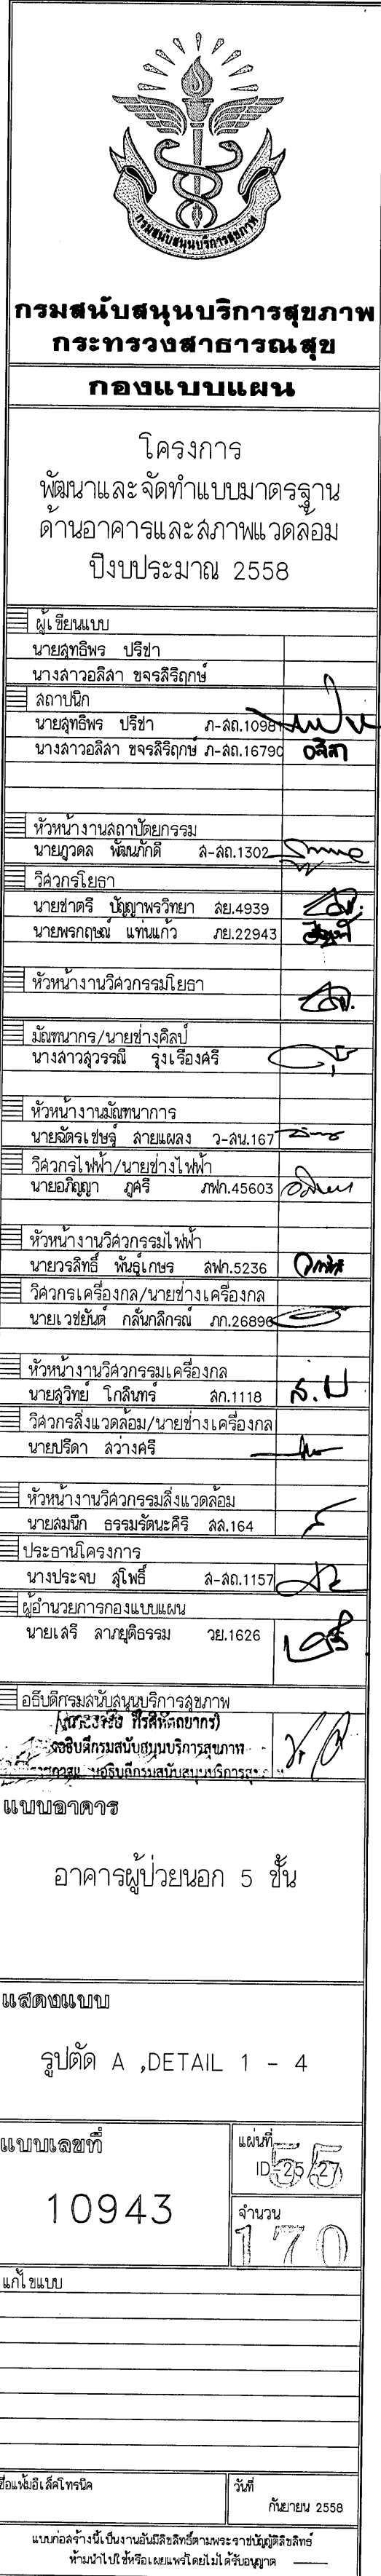 กรมสนับสนุนบริการสุขภาพ
กรมสนับสนุนบริการสุขภาพ
กระทรวงสาธารณสุข
กองแบบแผน
โครงการ
พัฒนาและจัดทำแบบมาตรฐาน
ด้านอาคารและสภาพแวดล้อม
ปีงบประมาณ 2558
ผู้เขียนแบบ
นายสุทธิพร ปรีชา
นางสาวอลิสา ขจรสิริฤกษ์
สถาปนิก
นายสุทธิพร ปรีชา ภ-สถ.10981
นางสาวอลิสา ขจรสิริฤกษ์ ภ-สถ.16790
อลิสา
หัวหน้างานสถาปัตยกรรม
นายภูวดล พัฒนภักดี ส-สถ.1302
วิศวกรโยธา
นายชาตรี ปัญญาพรวิทยา สย.4939
นายพรกฤษณ์ แท่นแก้ว ภย.22943
หัวหน้างานวิศวกรรมโยธา
มัณฑนากร/นายช่างศิลป์
นางสาวสุวรรณี รุ่งเรืองศรี
หัวหน้างานมัณฑนาการ
นายฉัตรเชษฐ์ สายแผลง ว-สน.167
วิศวกรไฟฟ้า/นายช่างไฟฟ้า
นายอภิญญา ภูศรี ภฟก.45603
หัวหน้างานวิศวกรรมไฟฟ้า
นายวรสิทธิ์ พันธุ์เกษร สฟก.5236
วิศวกรเครื่องกล/นายช่างเครื่องกล
นายเวชยันต์ กลั่นกลิกรณ์ ภก.26896
หัวหน้างานวิศวกรรมเครื่องกล
นายสุวิทย์ โกสินทร์ สก.1118
วิศวกรสิ่งแวดล้อม/นายช่างเครื่องกล
นายปรีดา สว่างศรี
หัวหน้างานวิศวกรรมสิ่งแวดล้อม
นายสมนึก ธรรมรัตนะศิริ สส.164
ประธานโครงการ
นางประจบ สุโพธิ์ ส-สถ.1157
ผู้อำนวยการกองแบบแผน
นายเสรี ลาภยุติธรรม วย.1626
อธิบดีกรมสนับสนุนบริการสุขภาพ
รองอธิบดีกรมสนับสนุนบริการสุขภาพ
แบบอาคาร
อาคารผู้ป่วยนอก 5 ชั้น
แสดงแบบ
รูปตัด A ,DETAIL 1 - 4
แบบเลขที่
10943
แผ่นที่
55
ID-25/27
จำนวน
170
แก้ไขแบบ
ชื่อแฟ้มอิเล็คโทรนิค
วันที่
กันยายน 2558
แบบก่อสร้างนี้เป็นงานอันมีลิขสิทธิ์ตามพระราชบัญญัติลิขสิทธิ์
ห้ามนำไปใช้หรือเผยแพร่โดยไม่ได้รับอนุญาต